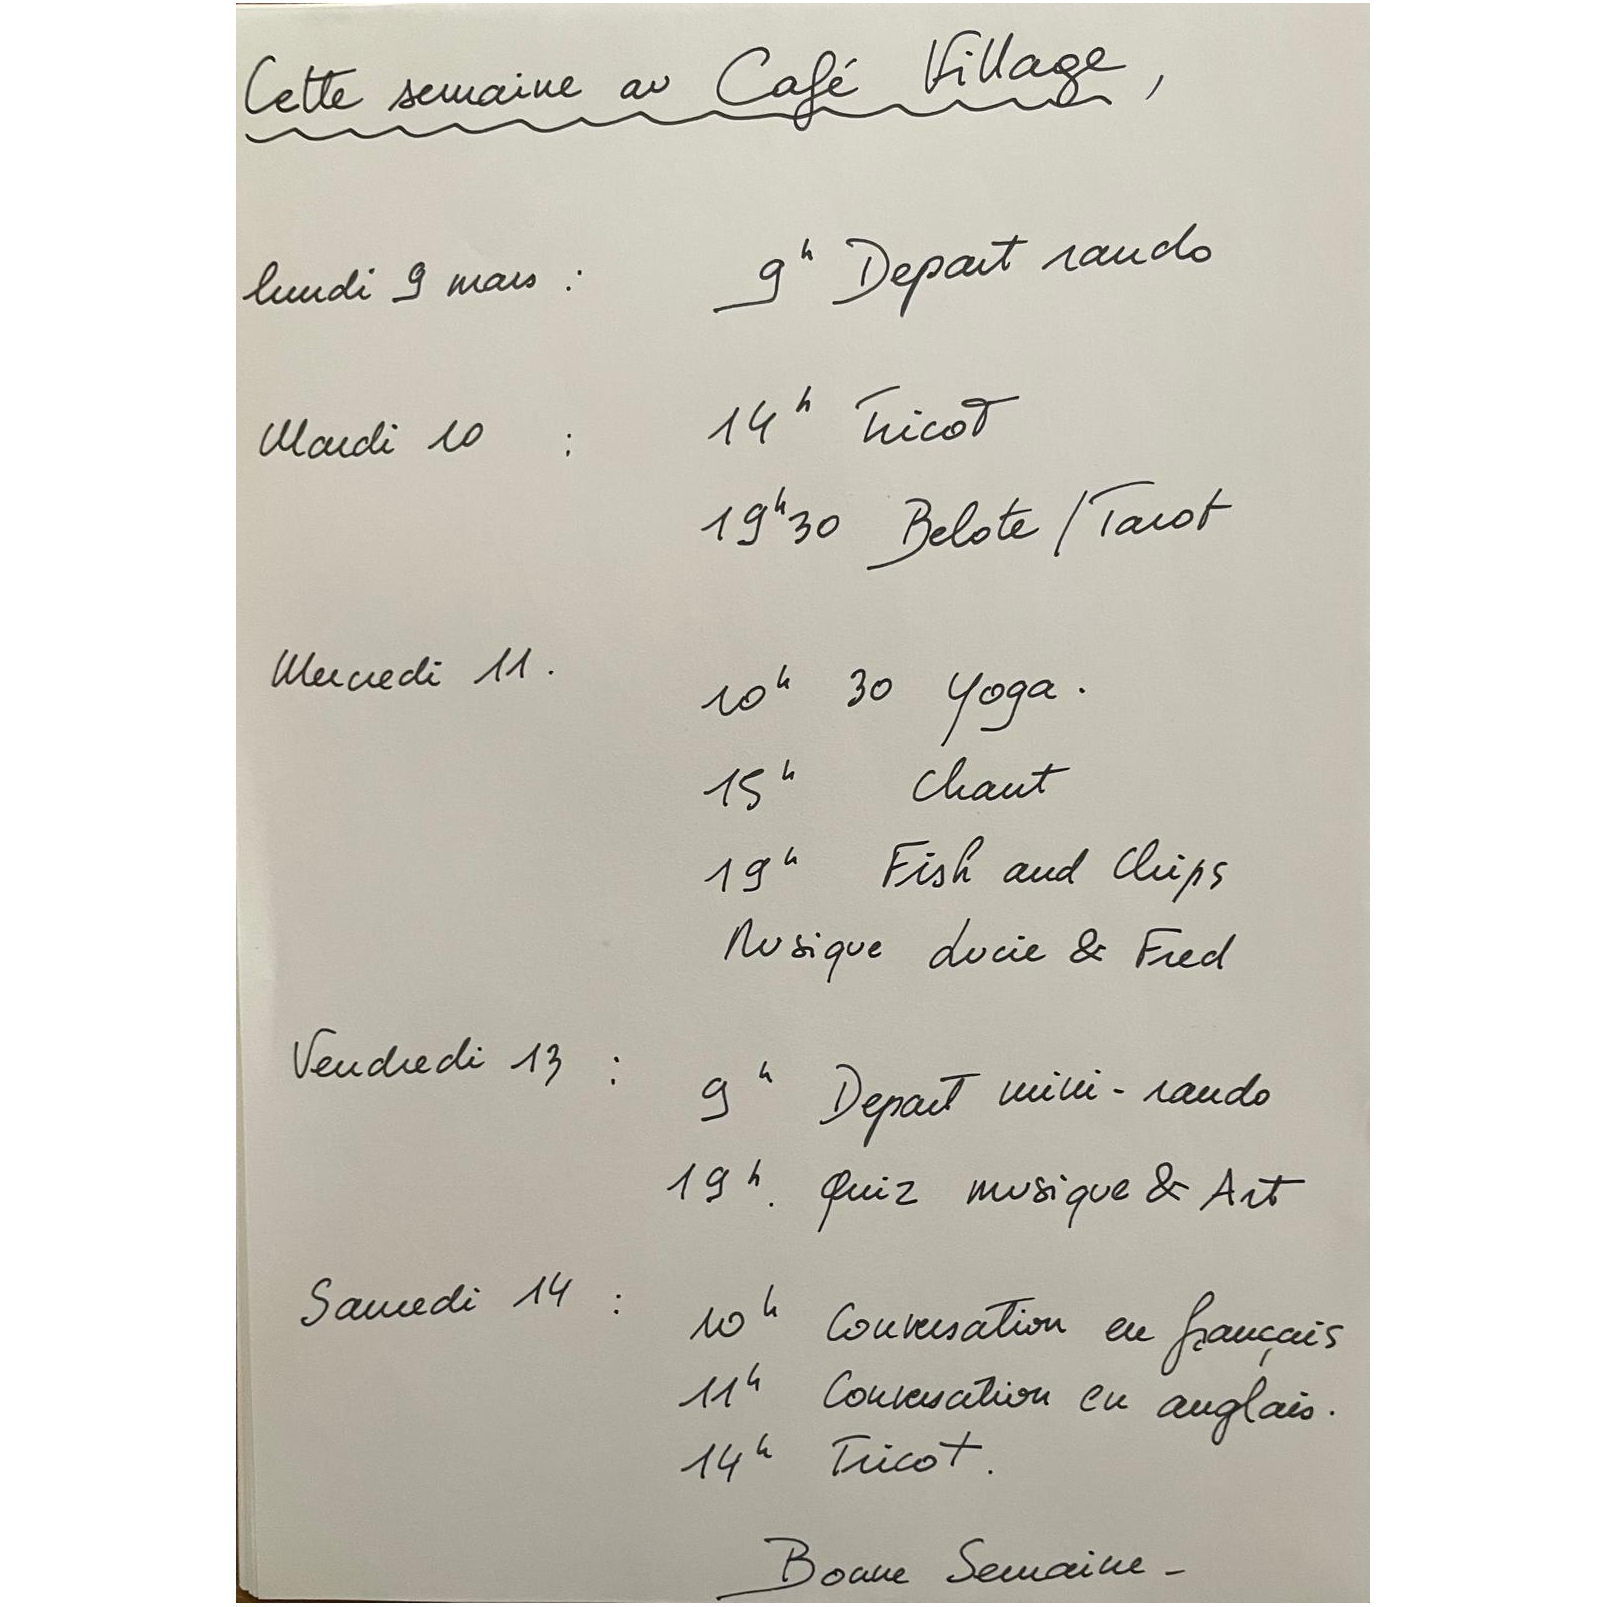 Cette semaine au Café Village,
lundi 9 mars : 9h Depart rando
Mardi 10 : 14h Tricot
19h30 Belote / Tarot
Mercredi 11. 10h 30 Yoga.
15h Chant
19h Fish and Chips
Musique Lucie & Fred
Vendredi 13 : 9h Depart mini-rando
19h. Quiz musique & Art
Samedi 14 : 10h Conversation en français
11h Conversation en anglais.
14h Tricot.
Bonne Semaine -